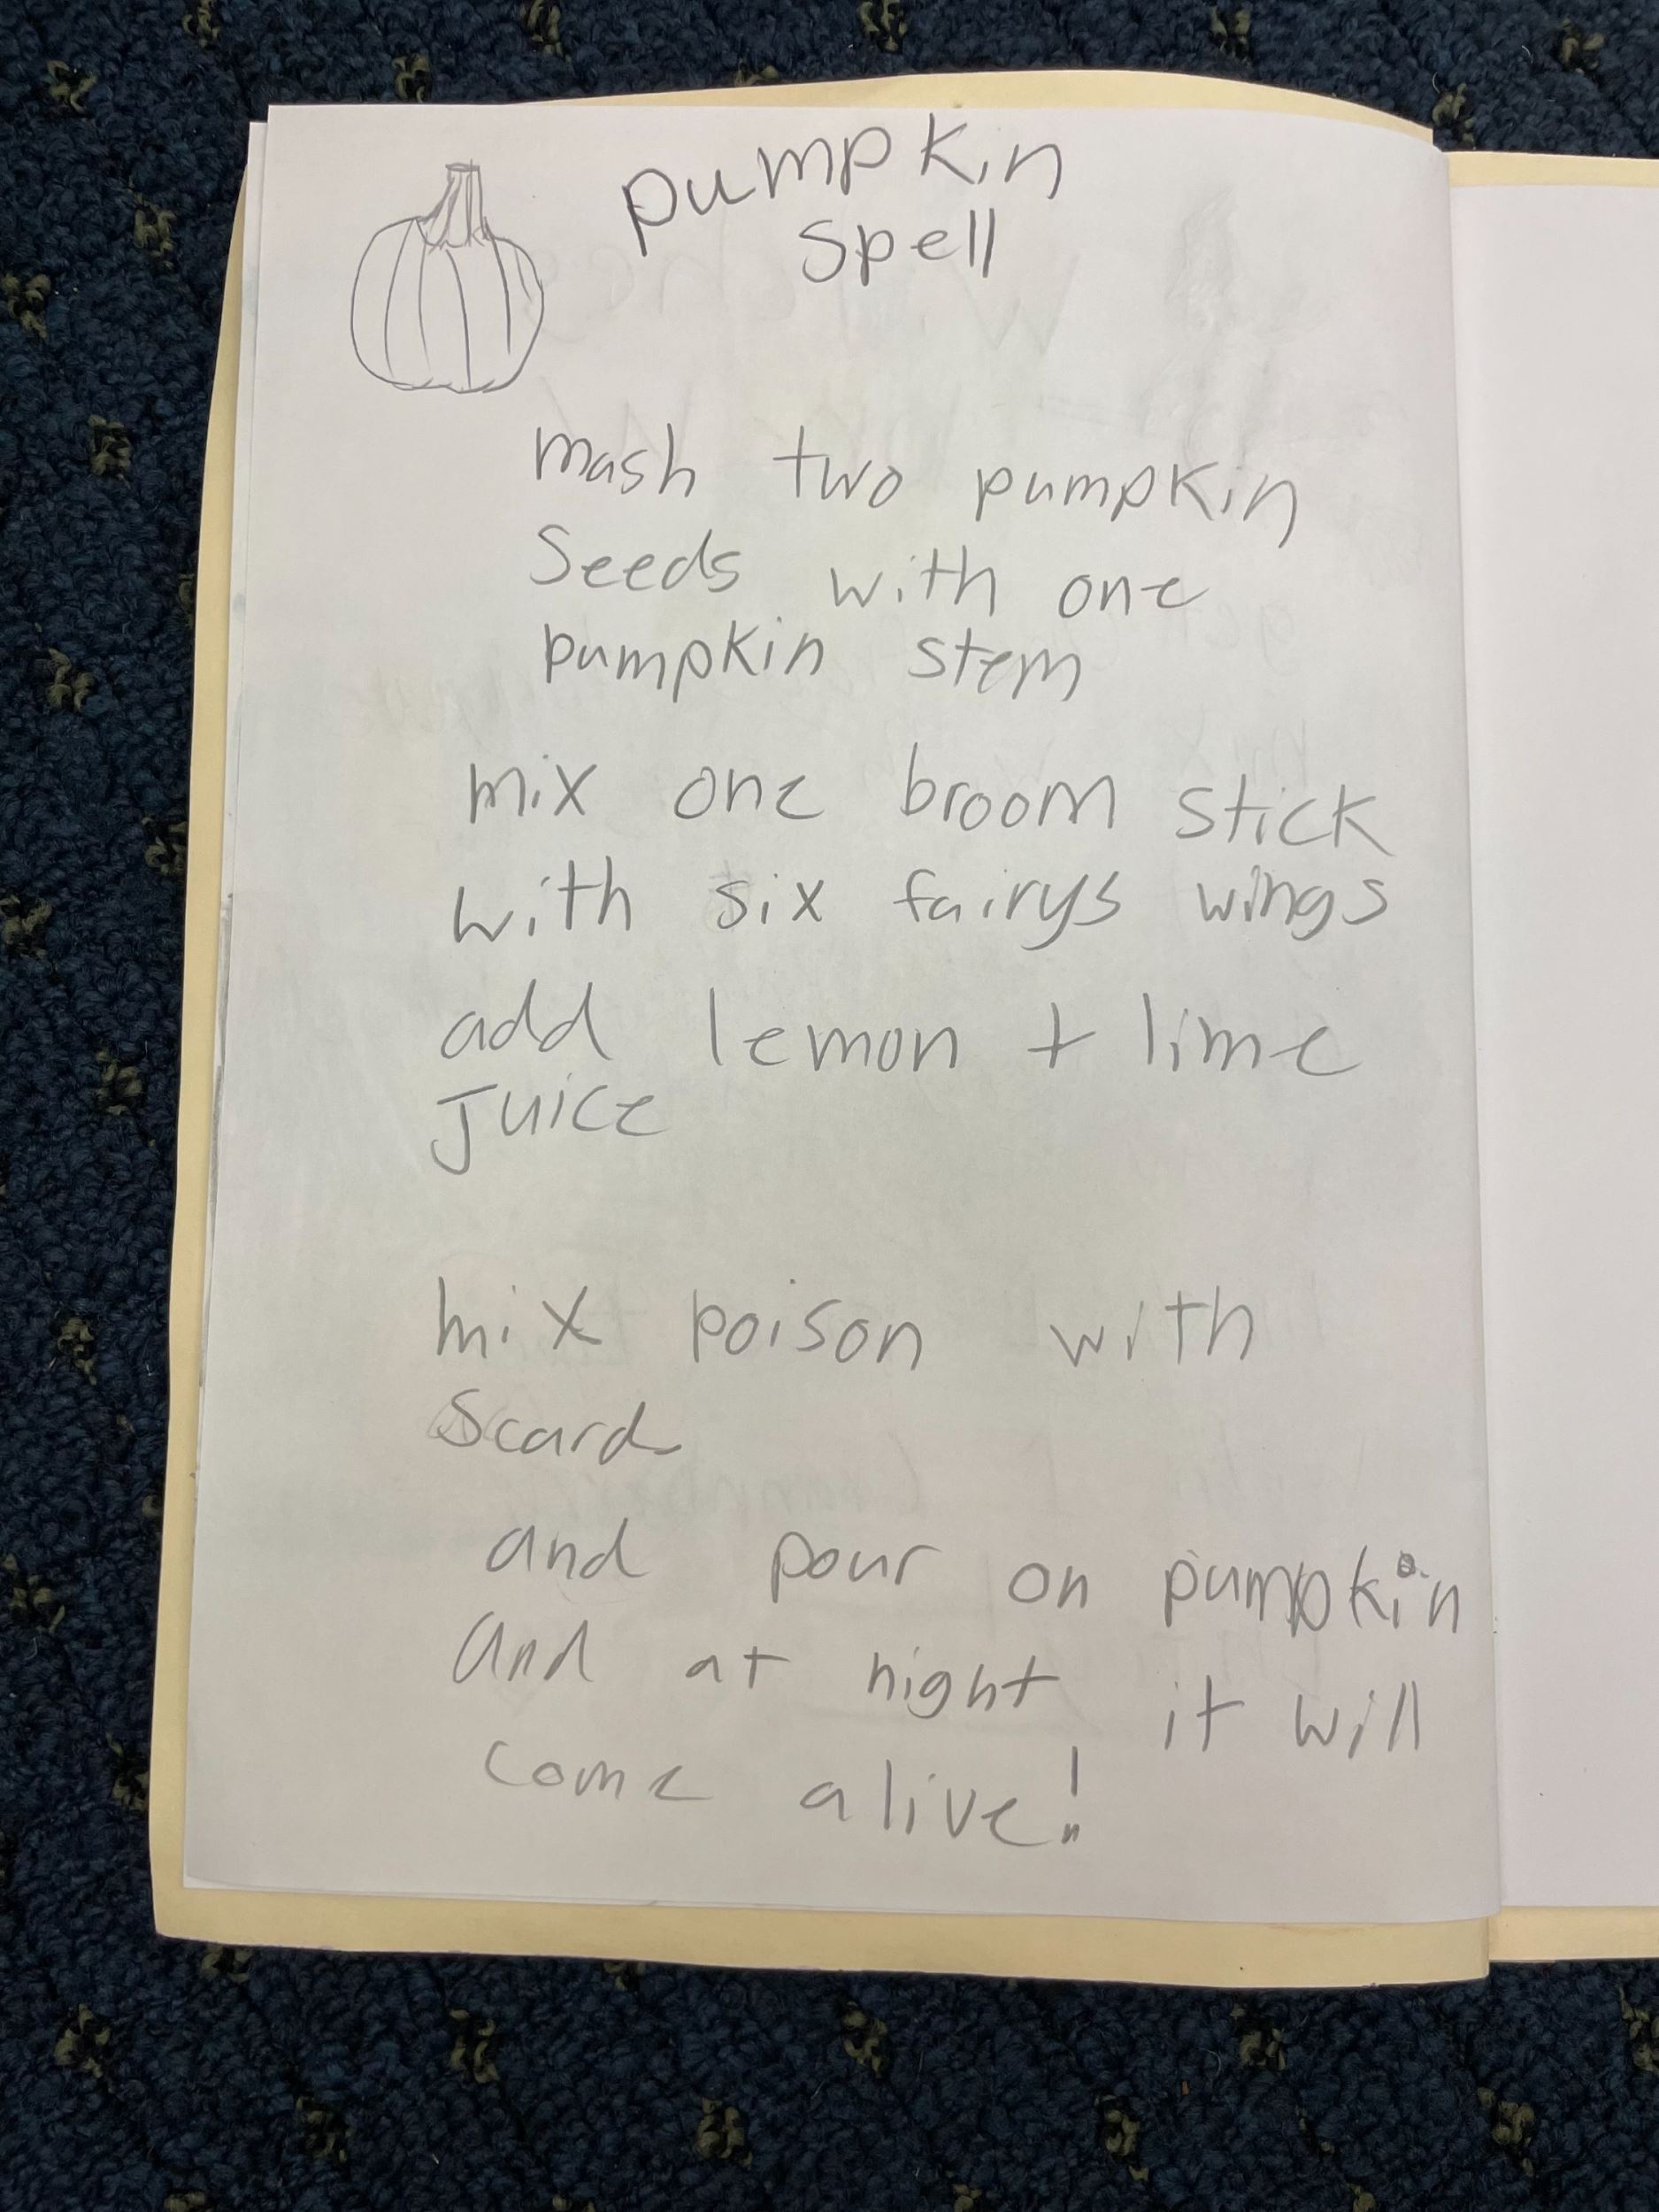 pumpkin
Spell
mash two pumpkin
Seeds with one
pumpkin stem
mix one broom stick
with six fairys wings
add lemon + lime
Juice
mix poison with
Scard
and pour on pumpkin
and at night it will
come alive!